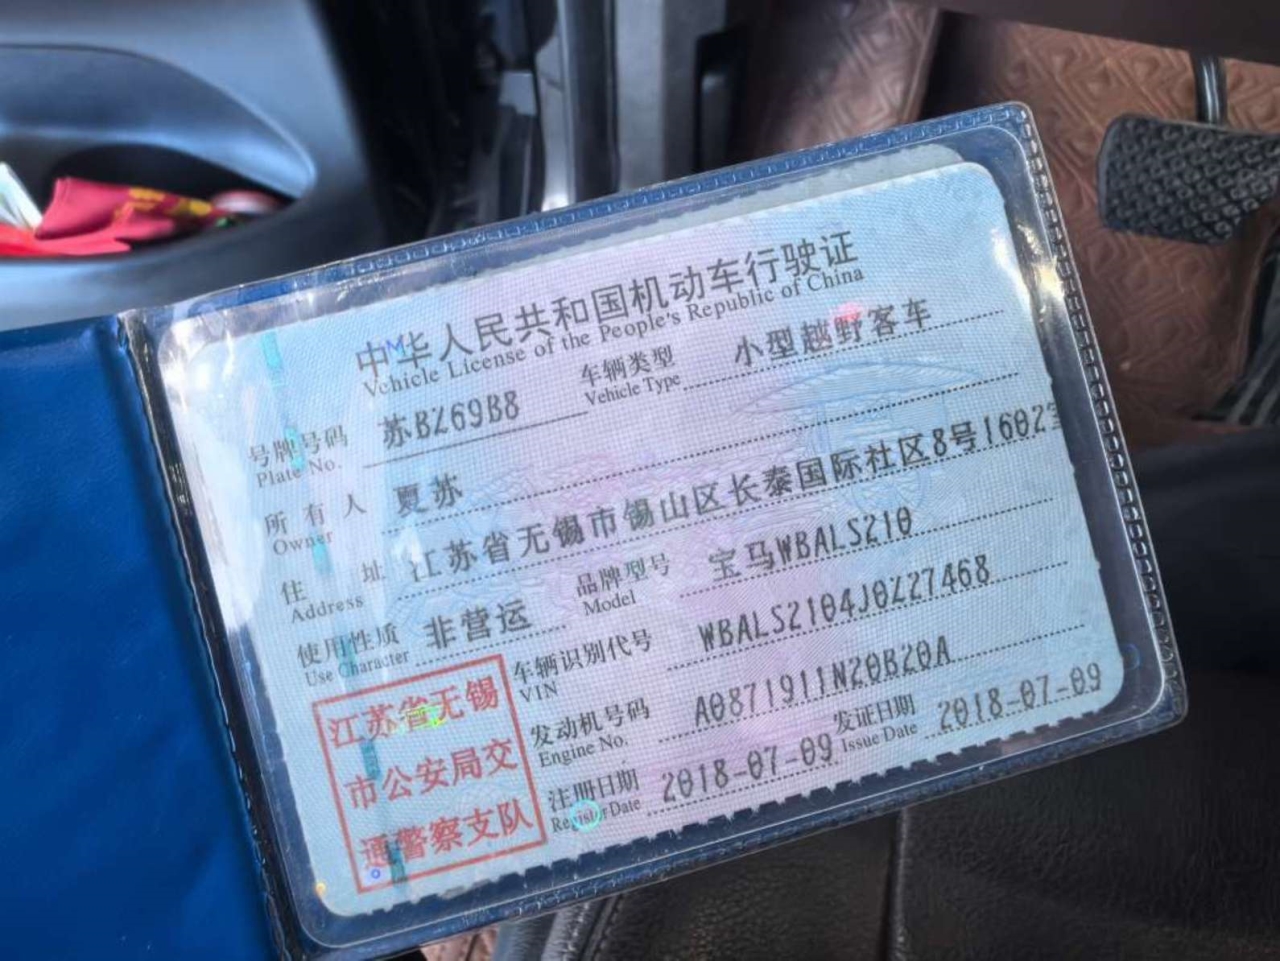 中华人民共和国机动车行驶证
Vehicle License of the People's Republic of China
号牌号码 苏BZ69B8 车辆类型 小型越野客车
Plate No. Vehicle Type
所有人 夏苏
Owner
住址 江苏省无锡市锡山区长泰国际社区8号1602室
Address
使用性质 非营运 品牌型号 宝马WBALS210
Use Character Model
车辆识别代号 WBALS2104J0Z27468
VIN
发动机号码 A0871911N20B20A
Engine No.
注册日期 2018-07-09 发证日期 2018-07-09
Register Date Issue Date
江苏省无锡
市公安局交
通警察支队